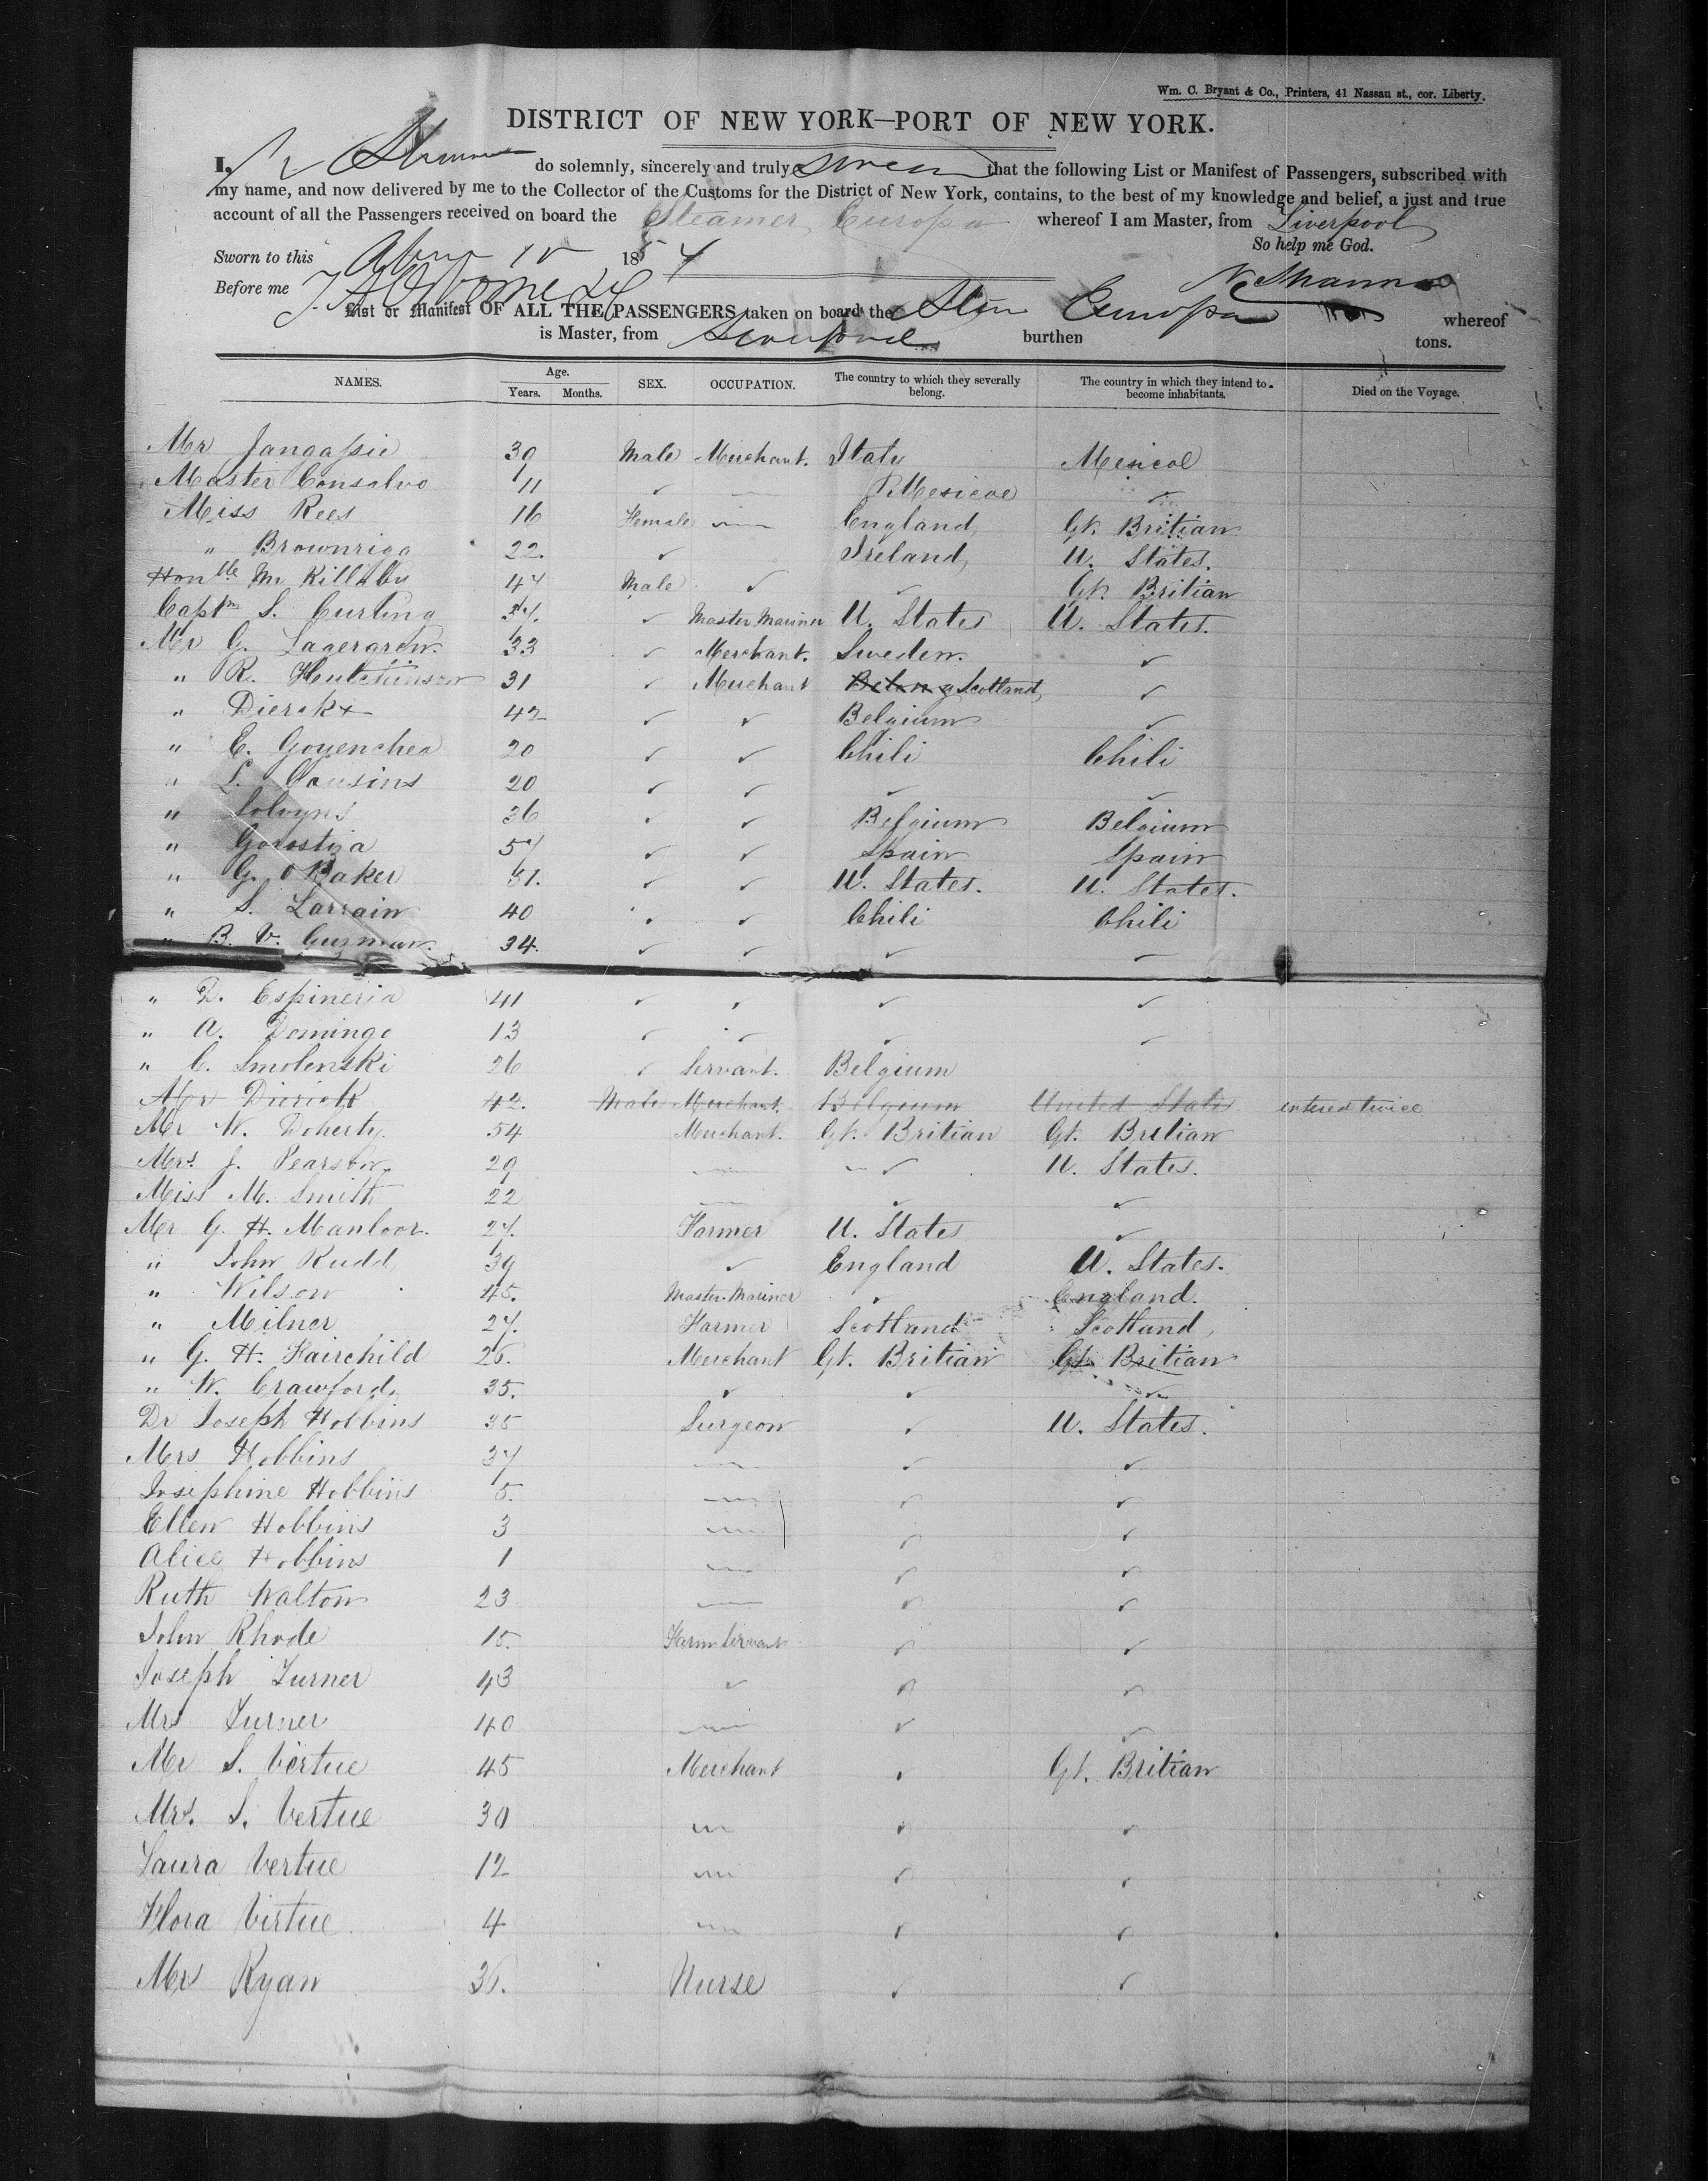 Wm. C. Bryant & Co., Printers, 41 Nassau st., cor. Liberty.
DISTRICT OF NEW YORK—PORT OF NEW YORK.
I, do solemnly, sincerely and truly swear that the following List or Manifest of Passengers, subscribed with
my name, and now delivered by me to the Collector of the Customs for the District of New York, contains, to the best of my knowledge and belief, a just and true
account of all the Passengers received on board the Steamer Europa whereof I am Master, from Liverpool
So help me God.
Sworn to this 1854
N Shannon
Before me
List or Manifest OF ALL THE PASSENGERS taken on board the Stm Europa whereof
is Master, from Liverpool burthen tons.
NAMES. Age. Years. Months. SEX. OCCUPATION. The country to which they severally belong. The country in which they intend to become inhabitants. Died on the Voyage.
Mr 30 Male Merchant. Italy Mexico
Master Consalvo 11 ✓ — Mexico ✓
Miss Rees 16 Female — England, Gt. Britian
" Brownrigg 22. ✓ Ireland, U. States.
Honble Mr Killaby 44 Male ✓ ✓ Gt. Britian
Captn S. Curling 34. ✓ Master Mariner U. States U. States.
Mr G. Lagergren. 33 ✓ Merchant. Sweden. ✓
" R. Hutchinson 31 ✓ Merchant Scotland, ✓
" Dierckx 42 ✓ ✓ Belgium ✓
" E. Goyenchea 20 ✓ ✓ Chili Chili
" L. Cousins 20 ✓ ✓ ✓ ✓
" Solvyns 36 ✓ ✓ Belgium Belgium
" Gorostiza 54 ✓ ✓ Spain Spain
" G. O Baker 31. ✓ ✓ U. States. U. States.
" S. Larrain 40 ✓ ✓ Chili Chili
" B. V. Guzman. 34. ✓ ✓ ✓ ✓
" D. Espineria 41 ✓ ✓ ✓ ✓
" A. Domingo 13 ✓ ✓ ✓ ✓
" C. Smolenski 26 ✓ Servant. Belgium
Mr Dierick 42. Male Merchant. Belgium United States entered twice
Mr W. Doherty. 54 Merchant. Gt. Britian Gt. Britian
Mrs. J. Pearson. 29 — ✓ U. States.
Miss M. Smith 22 — ✓ ✓
Mr G. H. 24. Farmer U. States ✓
" John Rudd 39 ✓ England U. States.
" Wilson 45. Master Mariner ✓ England.
" Milner 24. Farmer Scotland Scotland,
" G. H. Fairchild 26. Merchant Gt. Britian Gt. Britian
" W. Crawford, 35. ✓ ✓ ✓
Dr Joseph Hobbins 35 Surgeon ✓ U. States.
Mrs Hobbins 34 — ✓ ✓
Josephine Hobbins 5. — ✓ ✓
Ellen Hobbins 3 — ✓ ✓
Alice Hobbins 1 — ✓ ✓
Ruth Walton 23 — ✓ ✓
John Rhode 15. Farm Servant ✓ ✓
Joseph Turner 43 ✓ ✓ ✓
Mrs Turner 40 — ✓ ✓
Mr S. Virtue 45 Merchant ✓ Gt. Britian
Mrs. S. Vertue 30 — ✓ ✓
Laura Vertue 12 — ✓ ✓
Flora Virtue 4 — ✓ ✓
Mrs Ryan 36. Nurse ✓ ✓